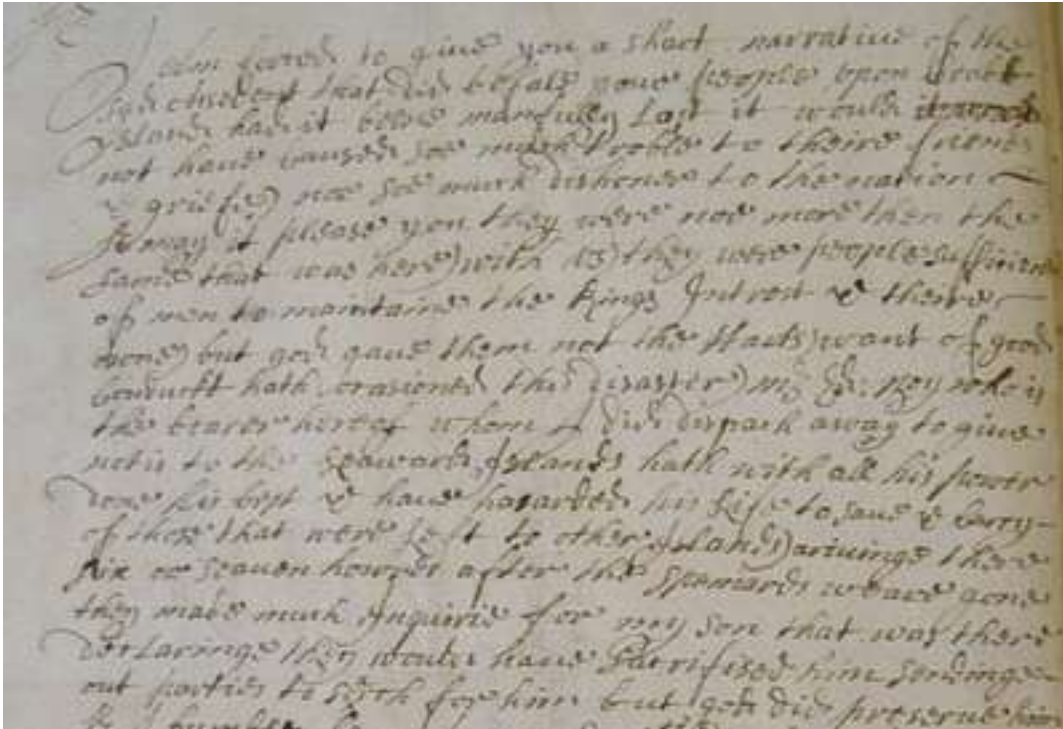 I am forced to give you a short narrative of the
sad accident that did befale youre people upon Crookt
Island had it beene manfully Lost it would
not have caused soe much troble to theire friends
& griefe) nor soe much dishonor to the nation
& may it please you they were noe more then the
same that was here) with us) they were people sufficient
of men to maintaine the Kings Intrest & theire
owne) but god gave them not the Harts) want of good
conduckt hath ocasioned this disaster) Roy who is
the bearer hereof whom I did dispach away to give
notis to the seawards Islands hath with all his power
done his best & have hazarded his Life to save & carry
of those that were Left to other Islands) ariuinge there
six or seaven howres after the Spaniards weare gone
they made much Inquirie for my son that was there
declaringe they would have sacrifised him sendinge
out parties to serch for him but god did preserve him